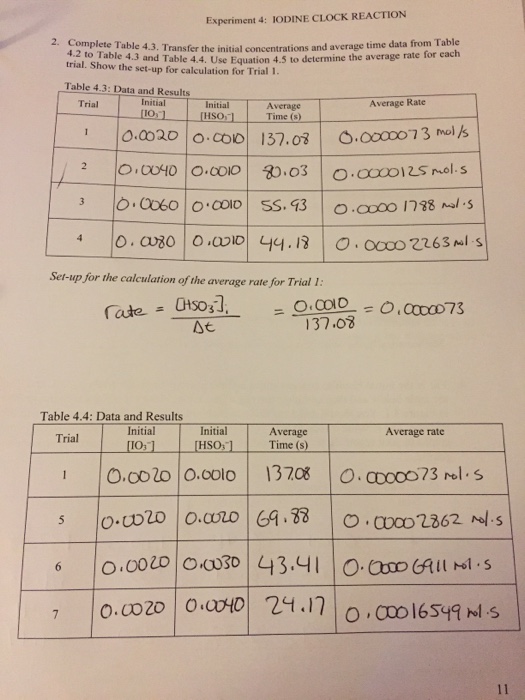 Experiment 4: IODINE CLOCK REACTION
2. Complete Table 4.3. Transfer the initial concentrations and average time data from Table
4.2 to Table 4.3 and Table 4.4. Use Equation 4.5 to determine the average rate for each
trial. Show the set-up for calculation for Trial 1.
Table 4.3: Data and Results
Trial Initial [IO₃⁻] Initial [HSO₃⁻] Average Time (s) Average Rate
1 0.0020 0.0010 137.08 0.0000073 mol/s
2 0.0040 0.0010 80.03 0.0000125 mol.s
3 0.0060 0.0010 55.93 0.00001788 mol.s
4 0.0080 0.0010 44.18 0.00002263 mol.s
Set-up for the calculation of the average rate for Trial 1:
rate = [HSO₃⁻]ᵢ / Δt = 0.0010 / 137.08 = 0.0000073
Table 4.4: Data and Results
Trial Initial [IO₃⁻] Initial [HSO₃⁻] Average Time (s) Average rate
1 0.0020 0.0010 137.08 0.0000073 mol.s
5 0.0020 0.0020 69.88 0.00002862 mol.s
6 0.0020 0.0030 43.41 0.00006911 mol.s
7 0.0020 0.0040 24.17 0.00016549 mol.s
11